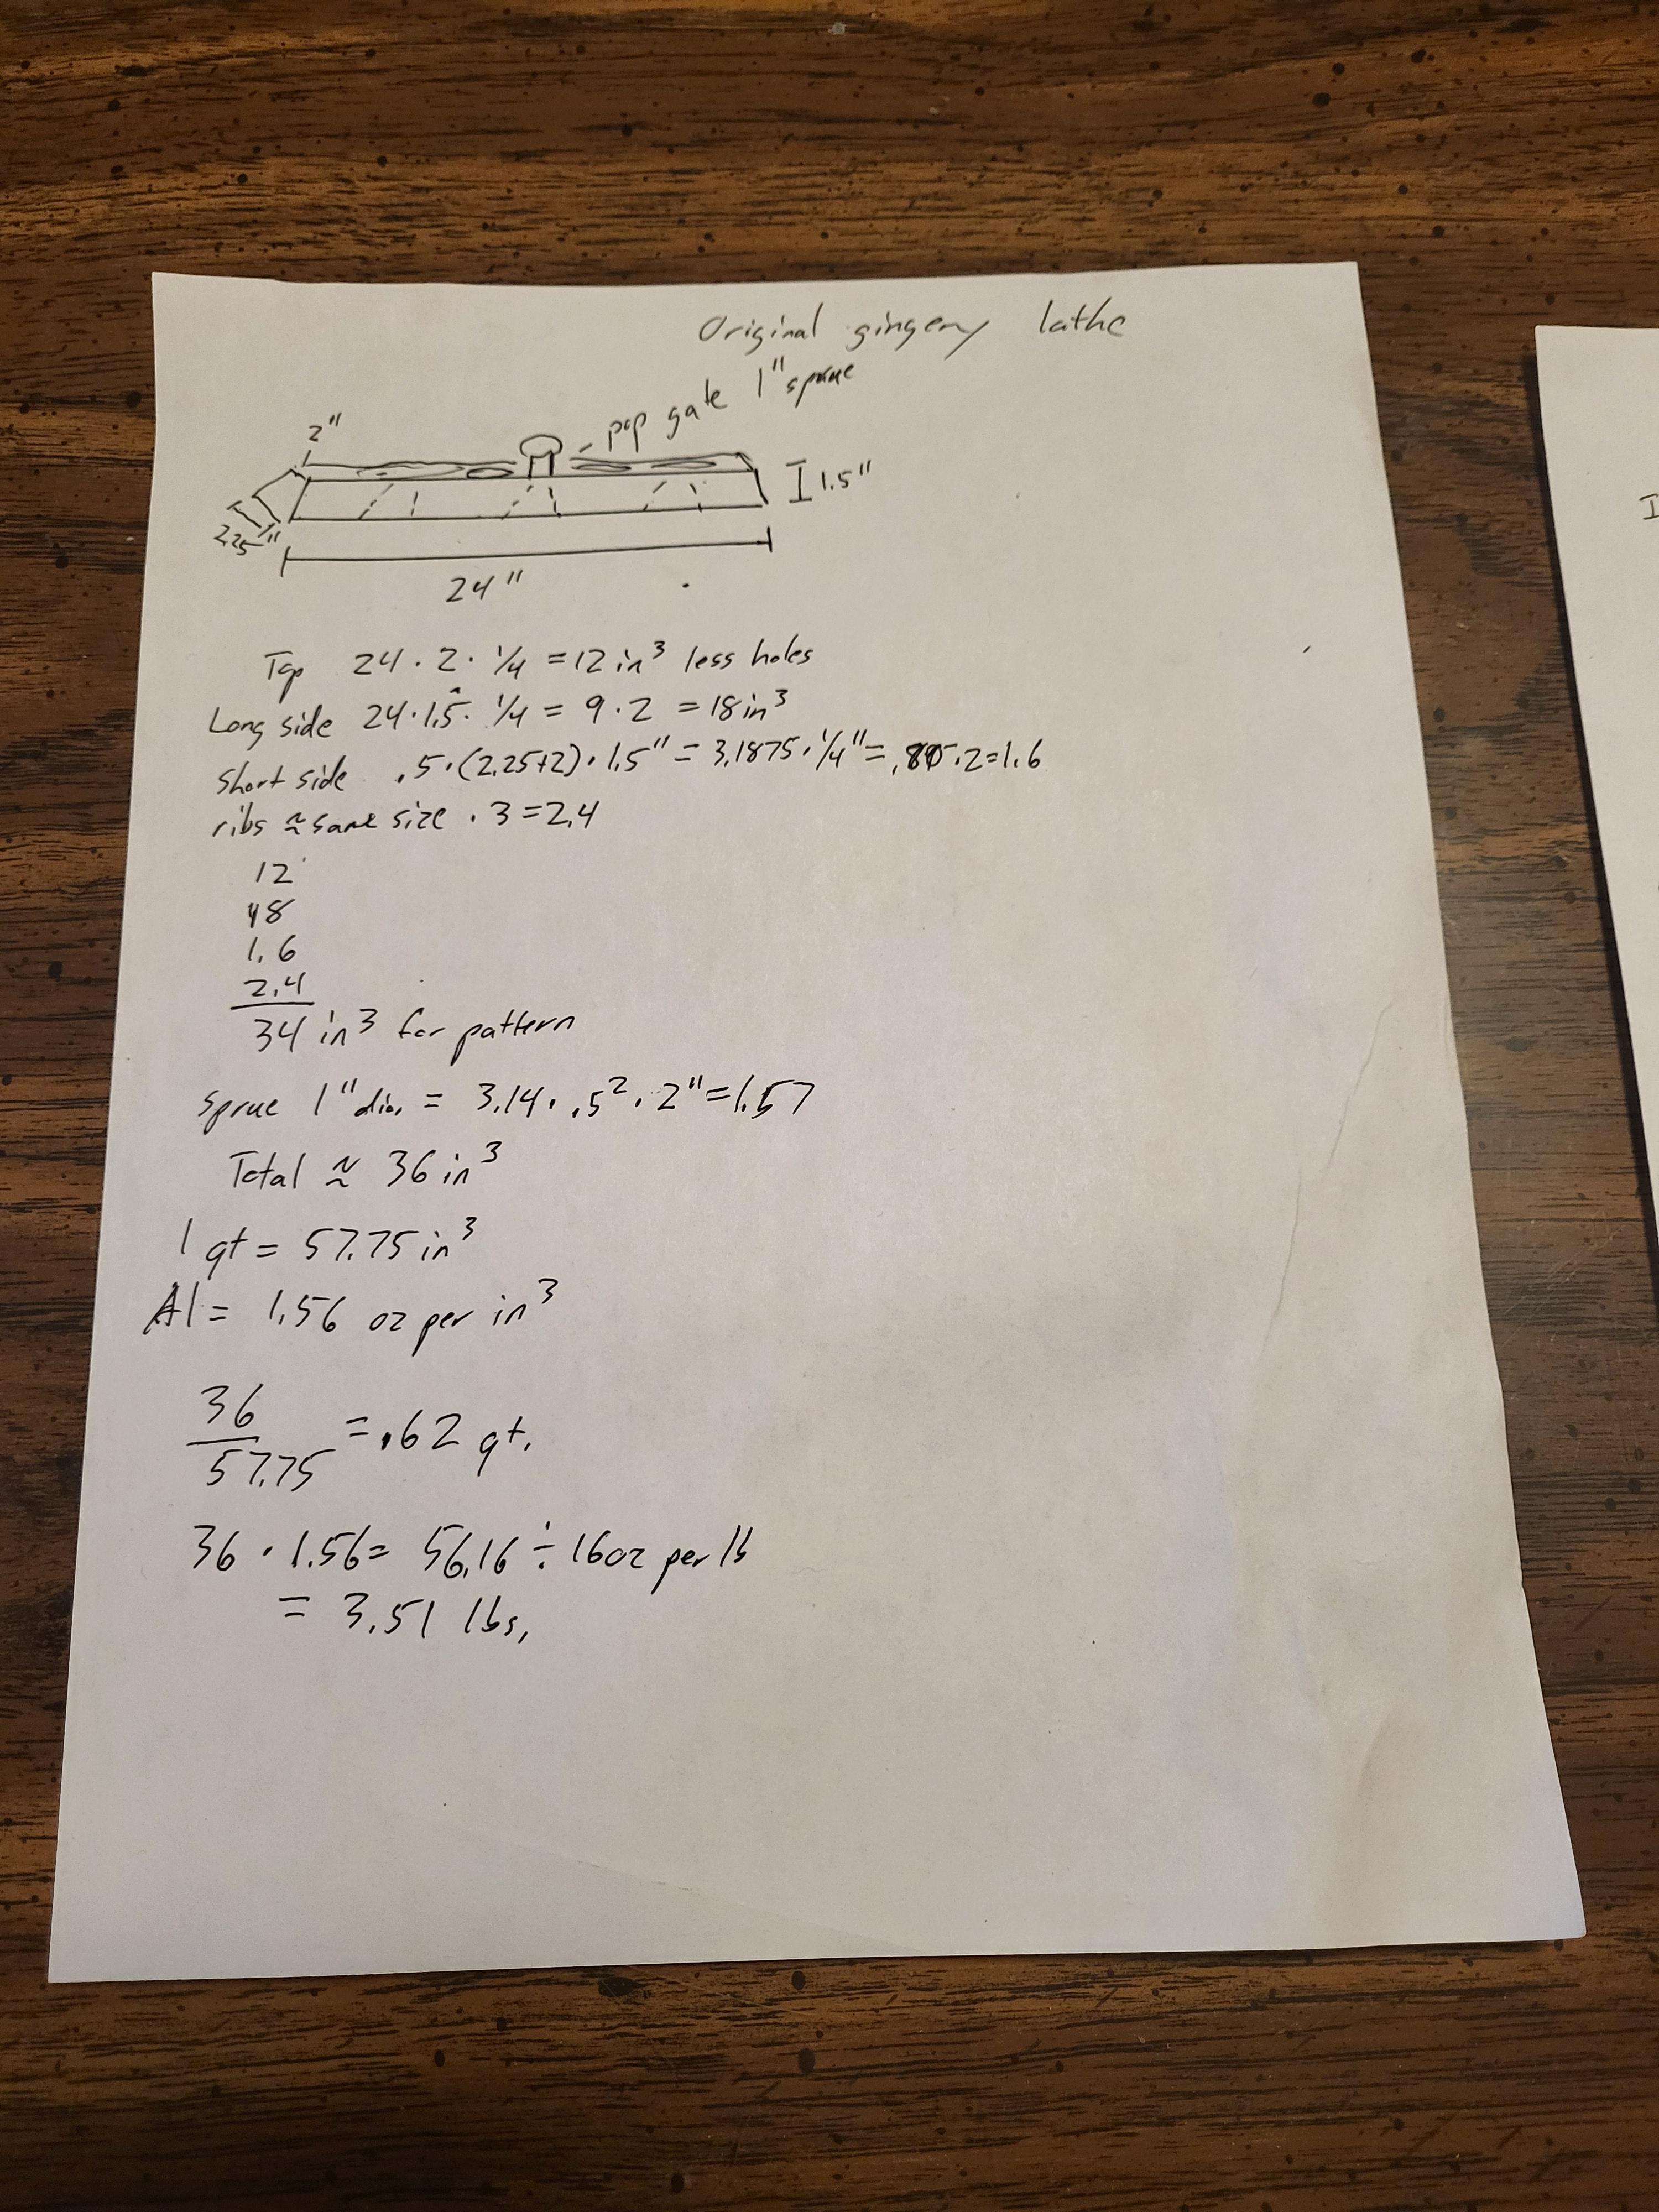 Original gingery lathe
pop gate 1" sprue
2"
1.5"
2.25"
24"
Top 24 · 2 · 1/4 = 12 in³ less holes
Long side 24 · 1.5 · 1/4 = 9 · 2 = 18 in³
short side .5 · (2.25+2) · 1.5" = 3.1875 · 1/4" = .80 · 2 = 1.6
ribs ≈ same size · 3 = 2.4
12
18
1.6
2.4
34 in³ for pattern
sprue 1" dia. = 3.14 · .5² · 2" = 1.57
Total ≈ 36 in³
1 qt = 57.75 in³
Al = 1.56 oz per in³
36
57.75
= .62 qt.
36 · 1.56 = 56.16 ÷ 16oz per lb
= 3.51 lbs.
I